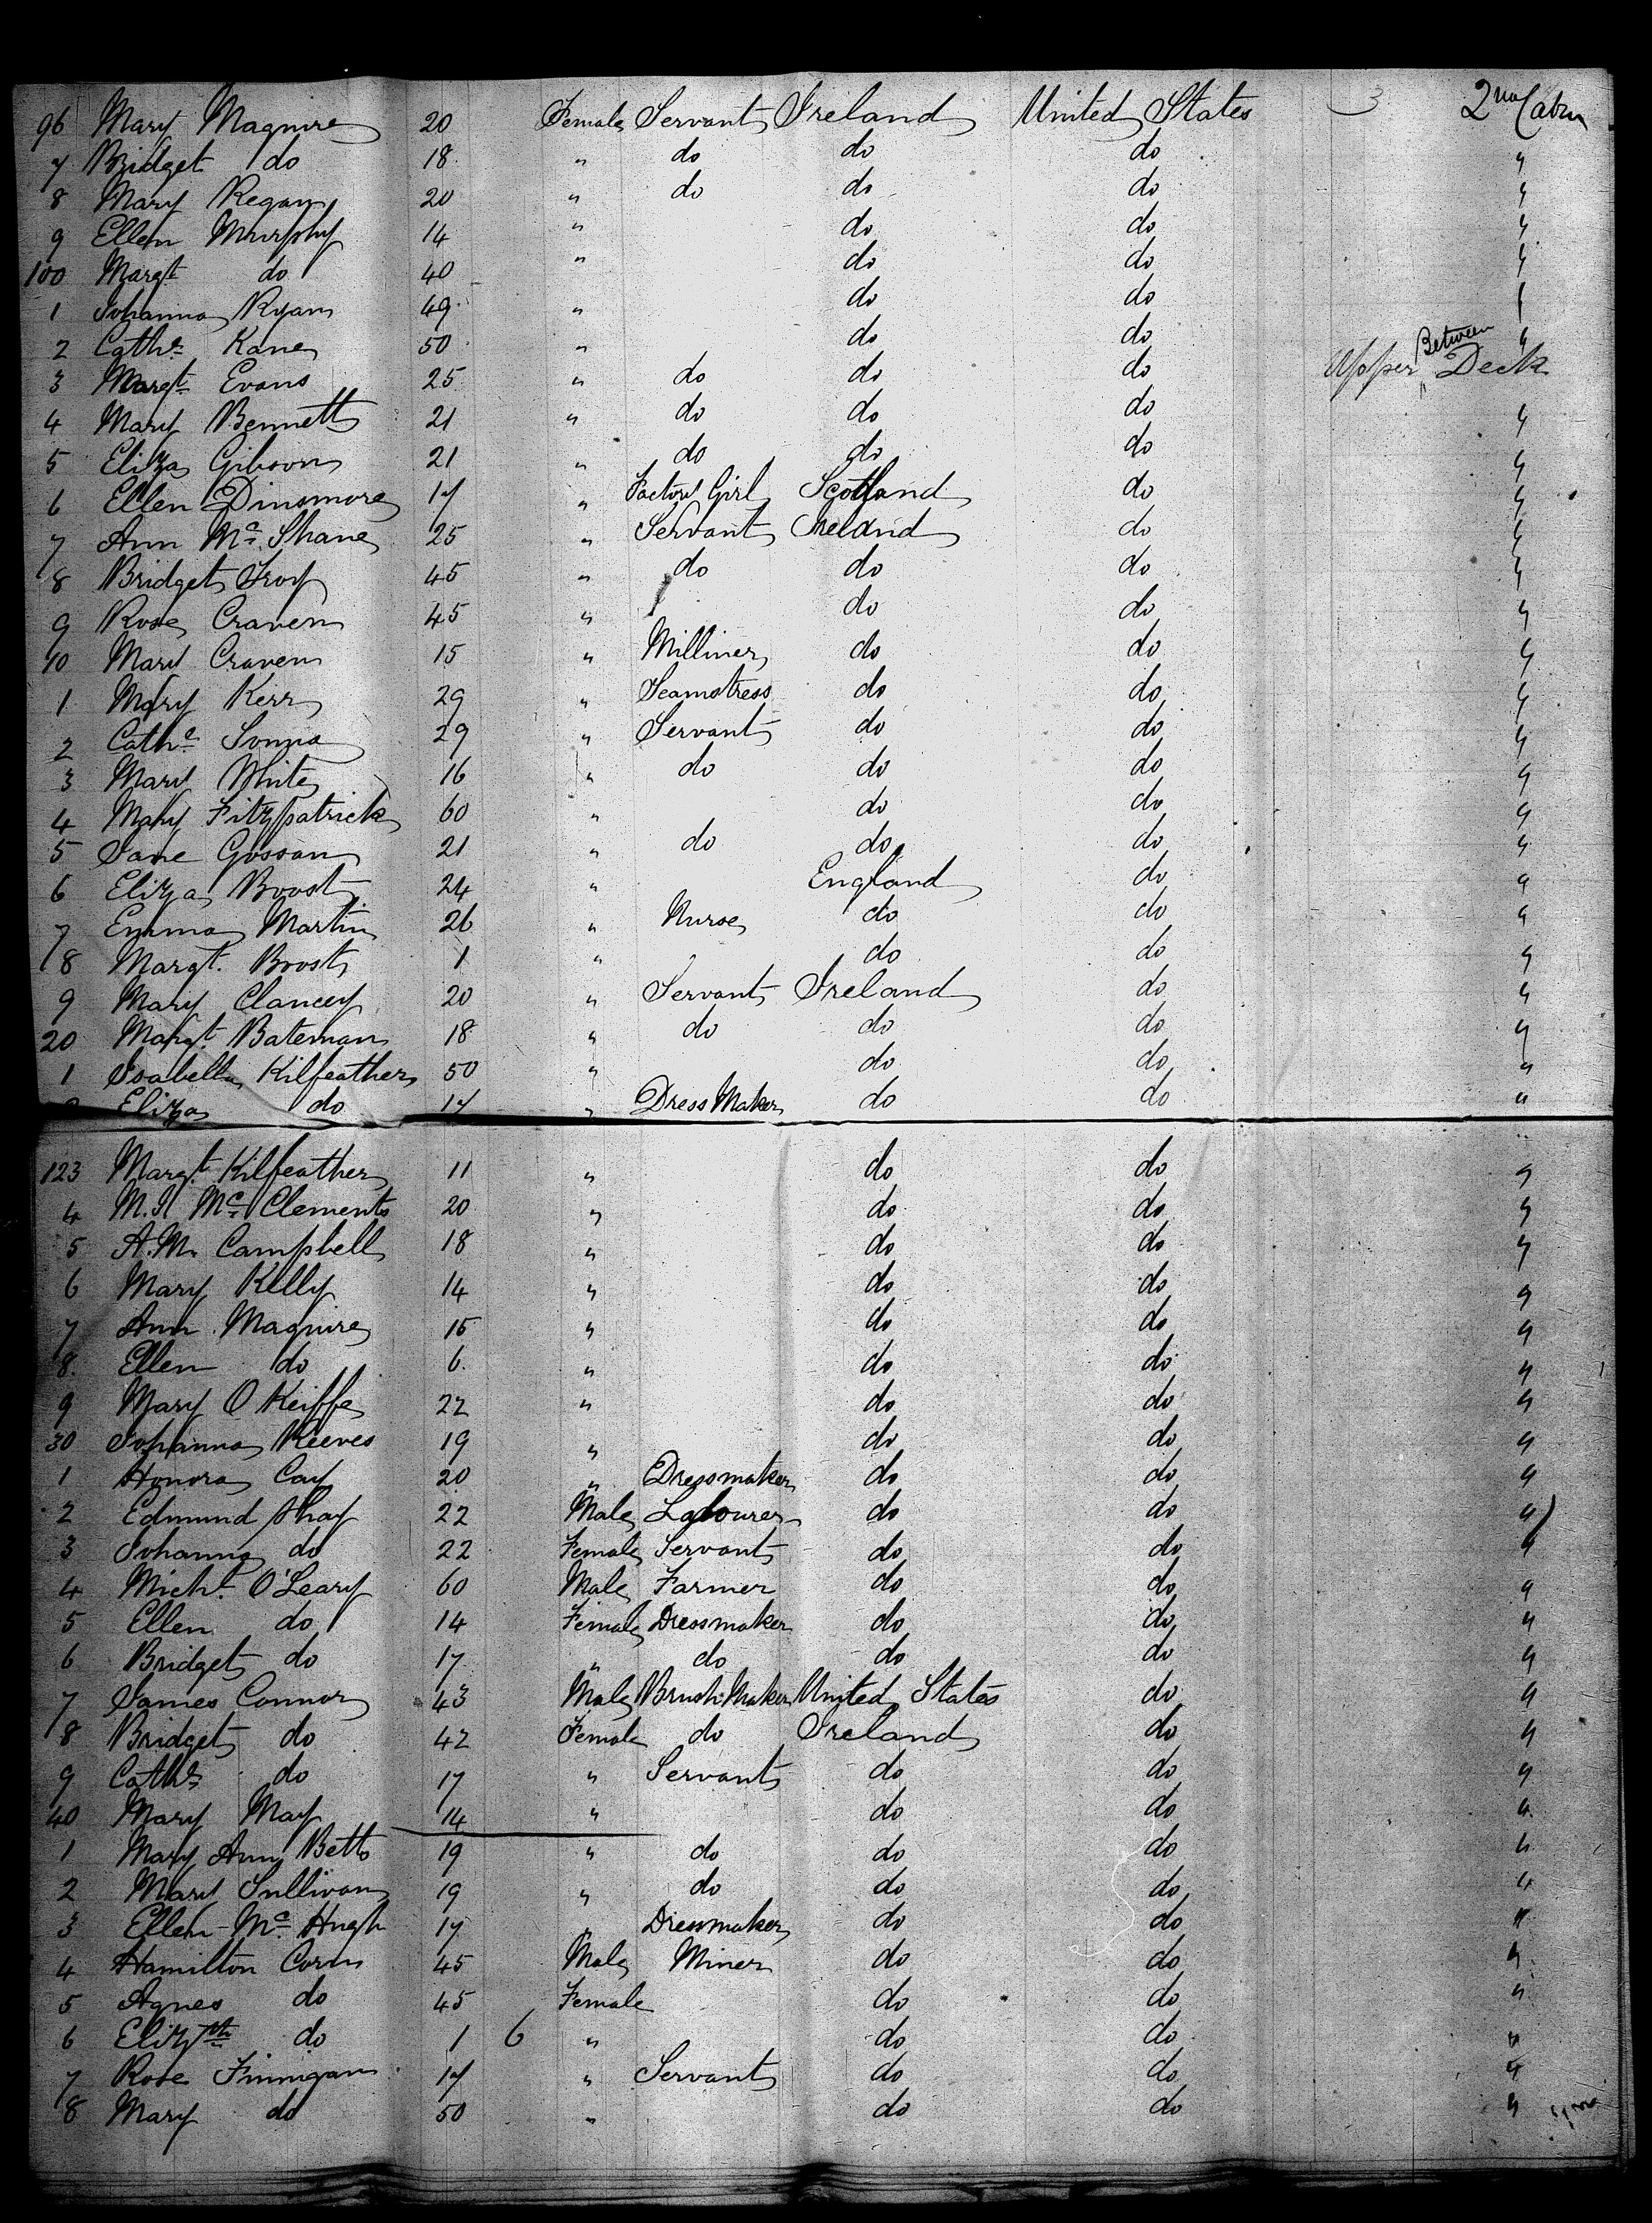 96 Mary Maguire 20 Female Servant Ireland United States 3 2nd Cabin
7 Bridget do 18 " do do do "
8 Mary Regan 20 " do do do "
9 Ellen Murphy 14 " do do "
100 Margt do 40 " do do "
1 Johanna Ryan 49 " do do "
2 Cathe Kane 50 " do do "
3 Margt Evans 25 " do do do Upper Between Deck
4 Mary Bennett 21 " do do do "
5 Eliza Gibson 21 " do do do "
6 Ellen Dinsmore 17 " Factory Girl Scotland do "
7 Ann Mc Shane 25 " Servant Ireland do "
8 Bridget Troy 45 " do do do "
9 Rose Craven 45 " do do "
10 Mary Craven 15 " Milliner do do "
1 Mary Kerr 29 " Seamstress do do "
2 Cathe 29 " Servant do do "
3 Mary White 16 " do do do "
4 Mary Fitzpatrick 60 " do do "
5 Jane Gossan 21 " do do do "
6 Eliza Boost 24 " England do "
7 Emma Martin 26 " Nurse do do "
8 Margt. Boost 1 " do do "
9 Mary Clancey 20 " Servant Ireland do "
20 Margt. Bateman 18 " do do do "
1 Isabella Kilfeather 50 " do do "
Eliza do 17 " Dress Maker do do "
123 Margt. Kilfeather 11 " do do "
4 Mc Clements 20 " do do "
5 A.M. Campbell 18 " do do "
6 Mary Kelly 14 " do do "
7 Ann Maguire 15 " do do "
8. Ellen do 6. " do do "
9 Mary O Keiffe 22 " do do "
30 Johanna Reeves 19 " do do "
1 Honora Cay 20 " Dressmaker do do "
2 Edmund 22 Male Labourer do do "
3 Johanna do 22 Female Servant do do "
4 Michl. O'Leary 60 Male Farmer do do "
5 Ellen do 14 Female Dressmaker do do "
6 Bridget do 17 " do do do "
7 James Connor 43 Male Brush Maker United States do "
8 Bridget do 42 Female do Ireland do "
9 Cathe do 17 " Servant do do "
40 Mary May 14 " do do "
1 Mary Ann Betts 19 " do do do "
2 Mary Sullivan 19 " do do do "
3 Ellen Mc Hugh 17 " Dressmaker do do "
4 Hamilton Corn 45 Male Miner do do "
5 Agnes do 45 Female do do "
6 Elizth do 1 6 " do do "
7 Rose Finnigan 17 " Servant do do "
8 Mary do 50 " do do "